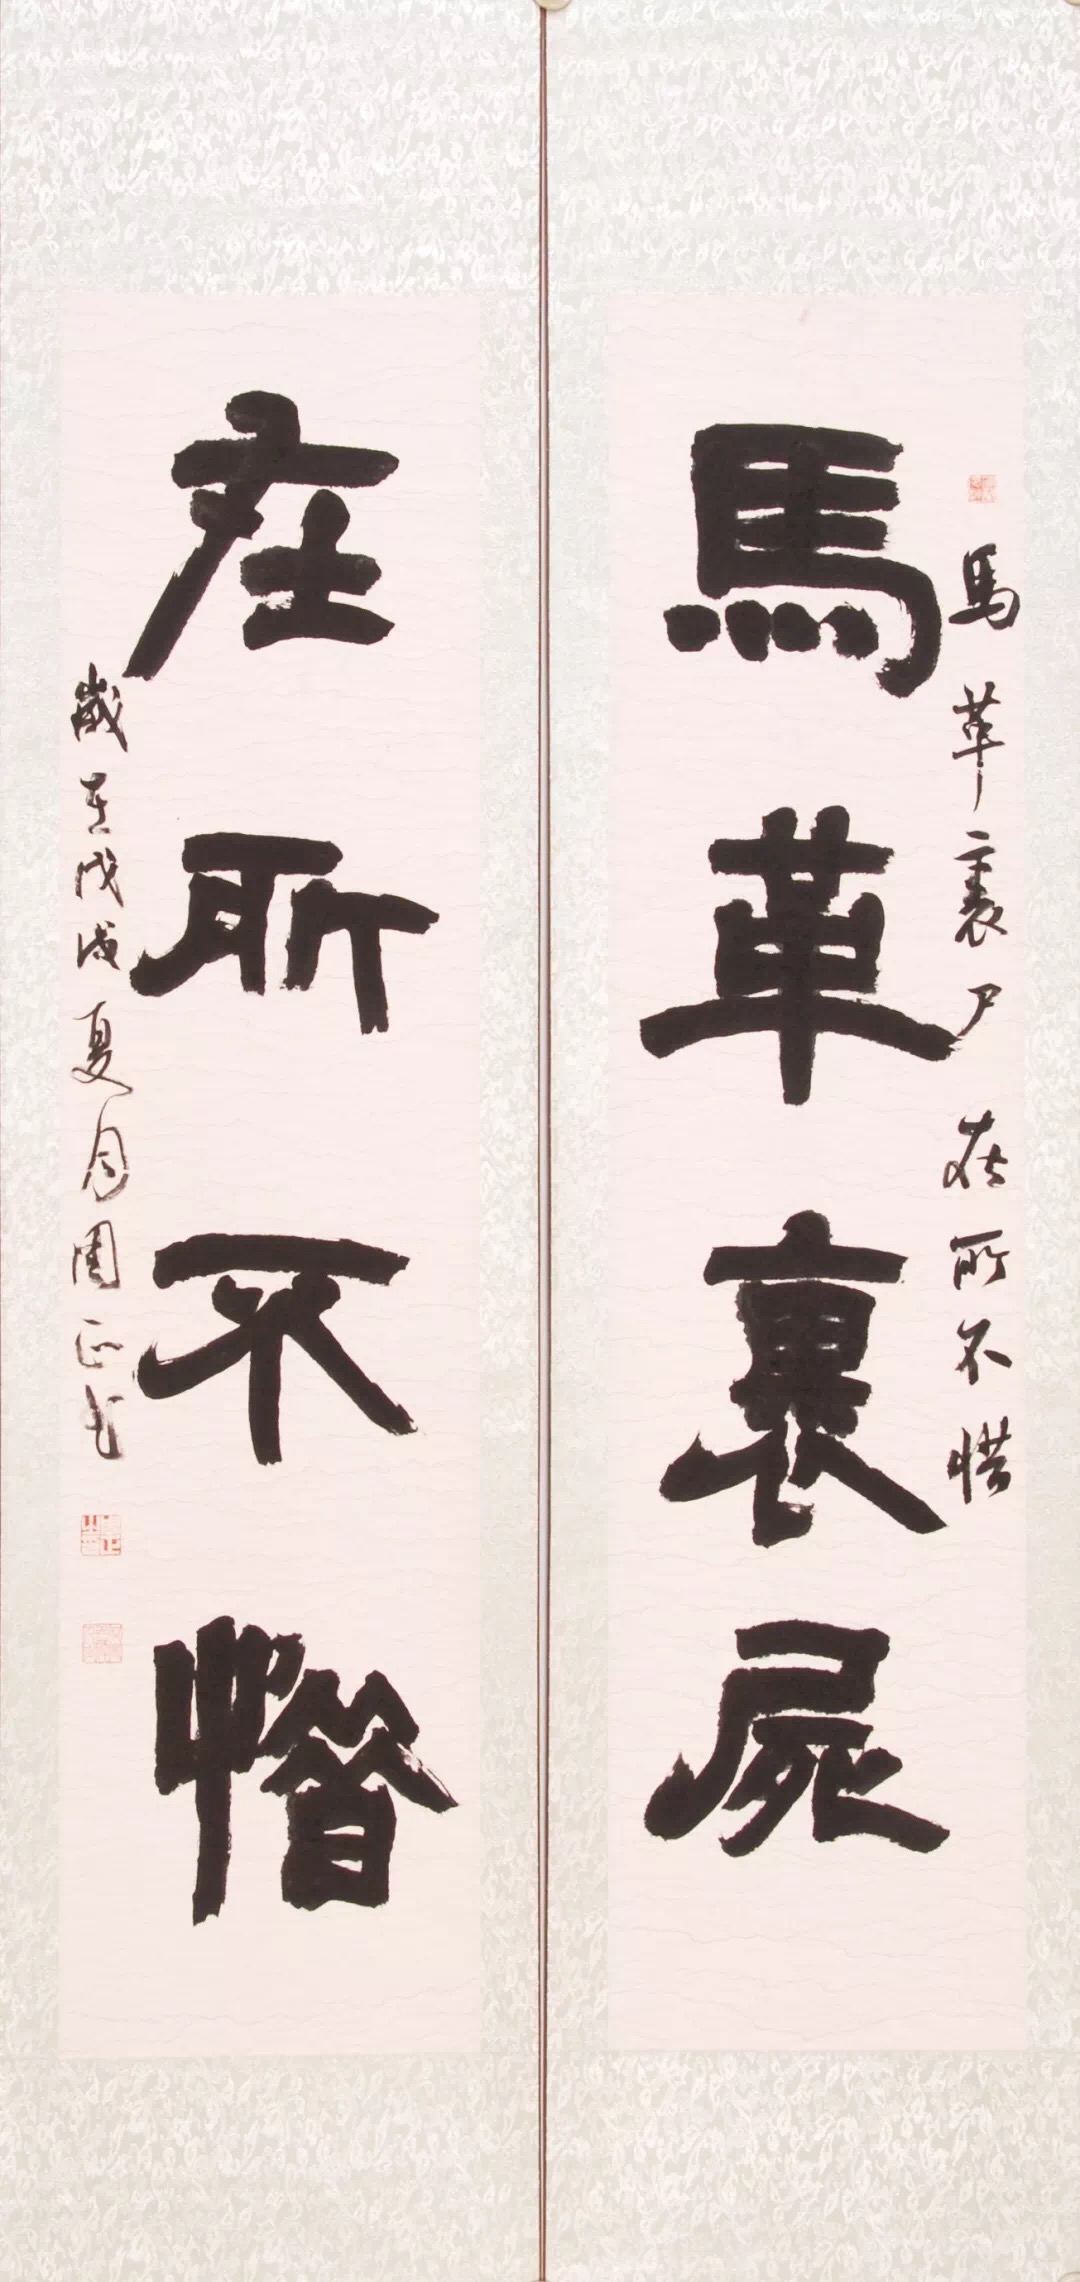 馬革裹尸 在所不惜
馬革裹屍
在所不惜
歲在戊戌夏月周正书